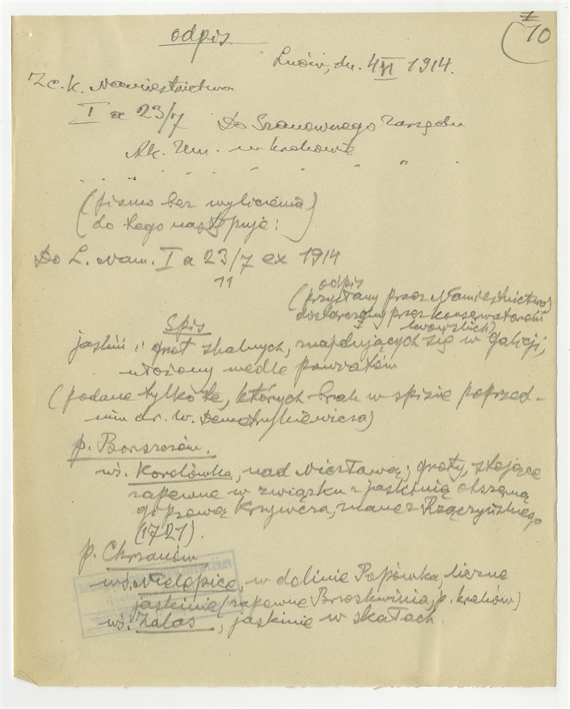 10
odpis
Lwów, dn. 4/VI 1914.
Z c. k. Namiestnictwa
I a 23/7 Do Szanownego Zarządu
Ak. Um. w Krakowie
(pismo bez wyliczenia)
(do tego następuje:)
Do L. Nam. I a 23/7 ex 1914
11
odpis
(przysłany przez Namiestnictwo)
dostarczony przez konserwatorów
lwowskich)
Spis
jaskiń i grot skalnych, znajdujących się w Galicji,
ułożony wedle powiatów
(podane tylko te, których brak w spisie poprzed-
nim dr. W. Demetrykiewicza)
p. Borszczów.
wś. Korolówka, nad Niecławą, groty, stojące
zapewne w związku z jaskinią obszerną
Krzywcza, znane z Rzączyńskiego
(1721).
p. Chrzanów
wś. Nielepice, w dolinie Popówka, liczne
jaskinie (zapewne p. Kraków)
wś. Zalas, jaskinie w skałach.